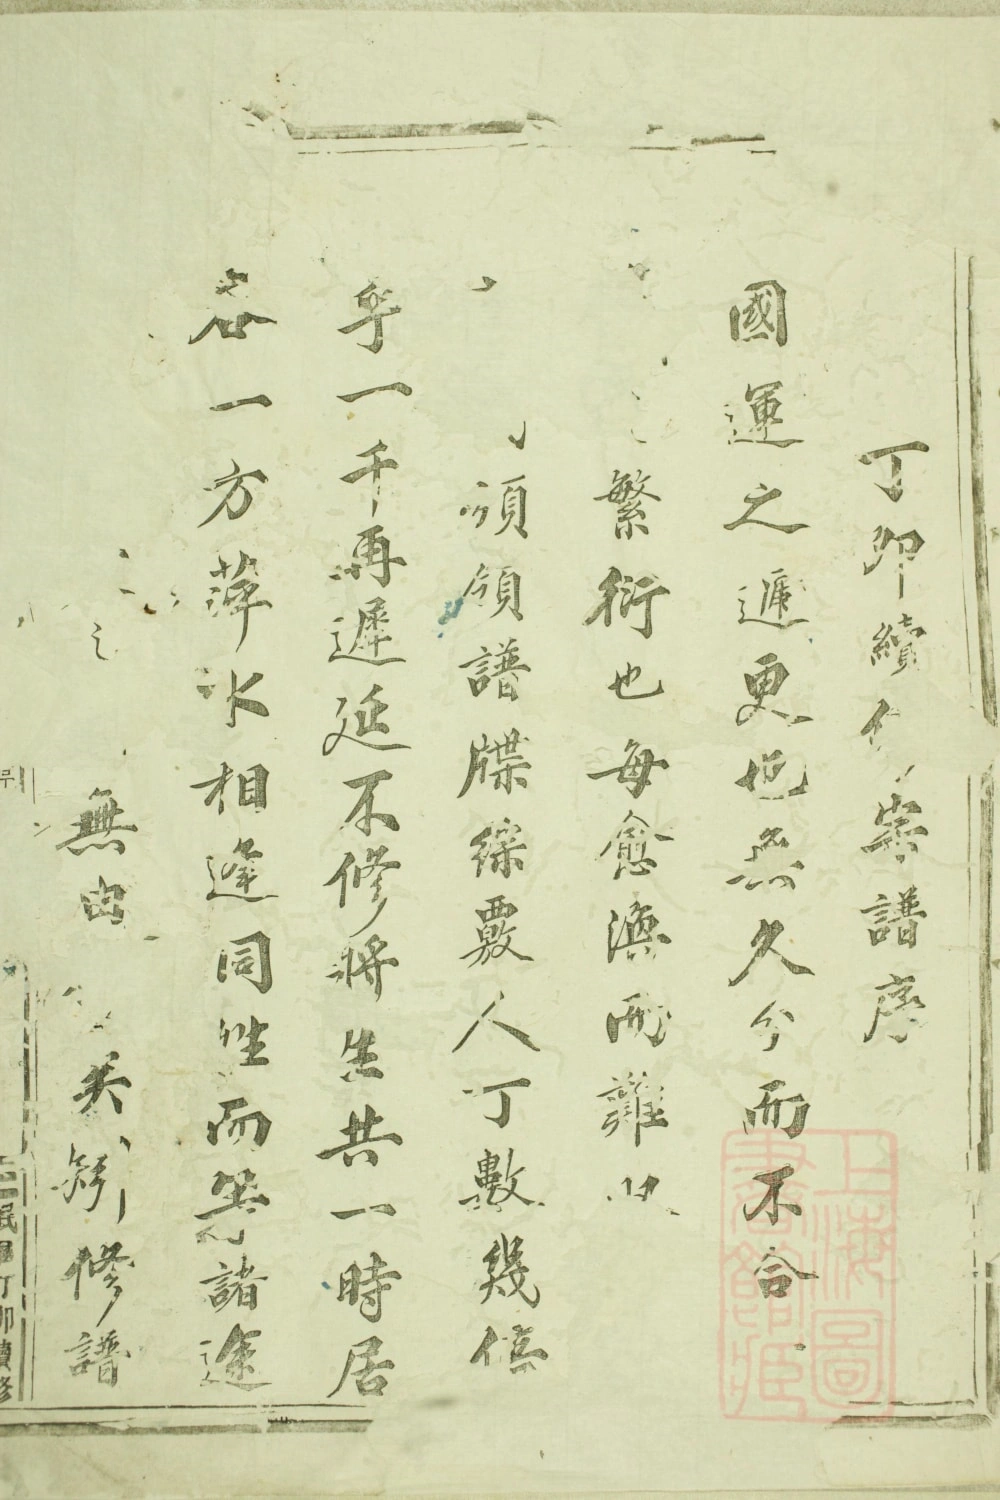 丁卯續修宗譜序
國運之遞更也無久今而不合
繁衍也每愈渙而難
頒領譜牒綜覈人丁數幾倍
乎一千再遲延不修將生共一時居
各一方萍水相逢同姓而等諸途
之 無由 矣爰修譜
民國丁卯續修
上海圖書館藏